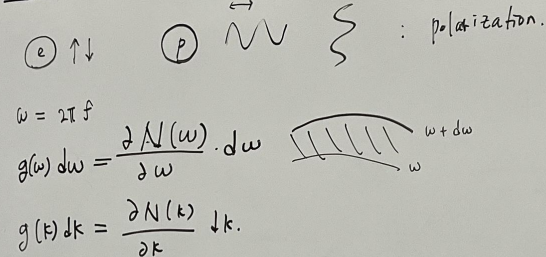 e ↑↓ p ↔ : polarization.
ω = 2π f
g(ω) dω = ∂N(ω)/∂ω · dω
ω + dω
ω
g(k) dk = ∂N(k)/∂k dk.